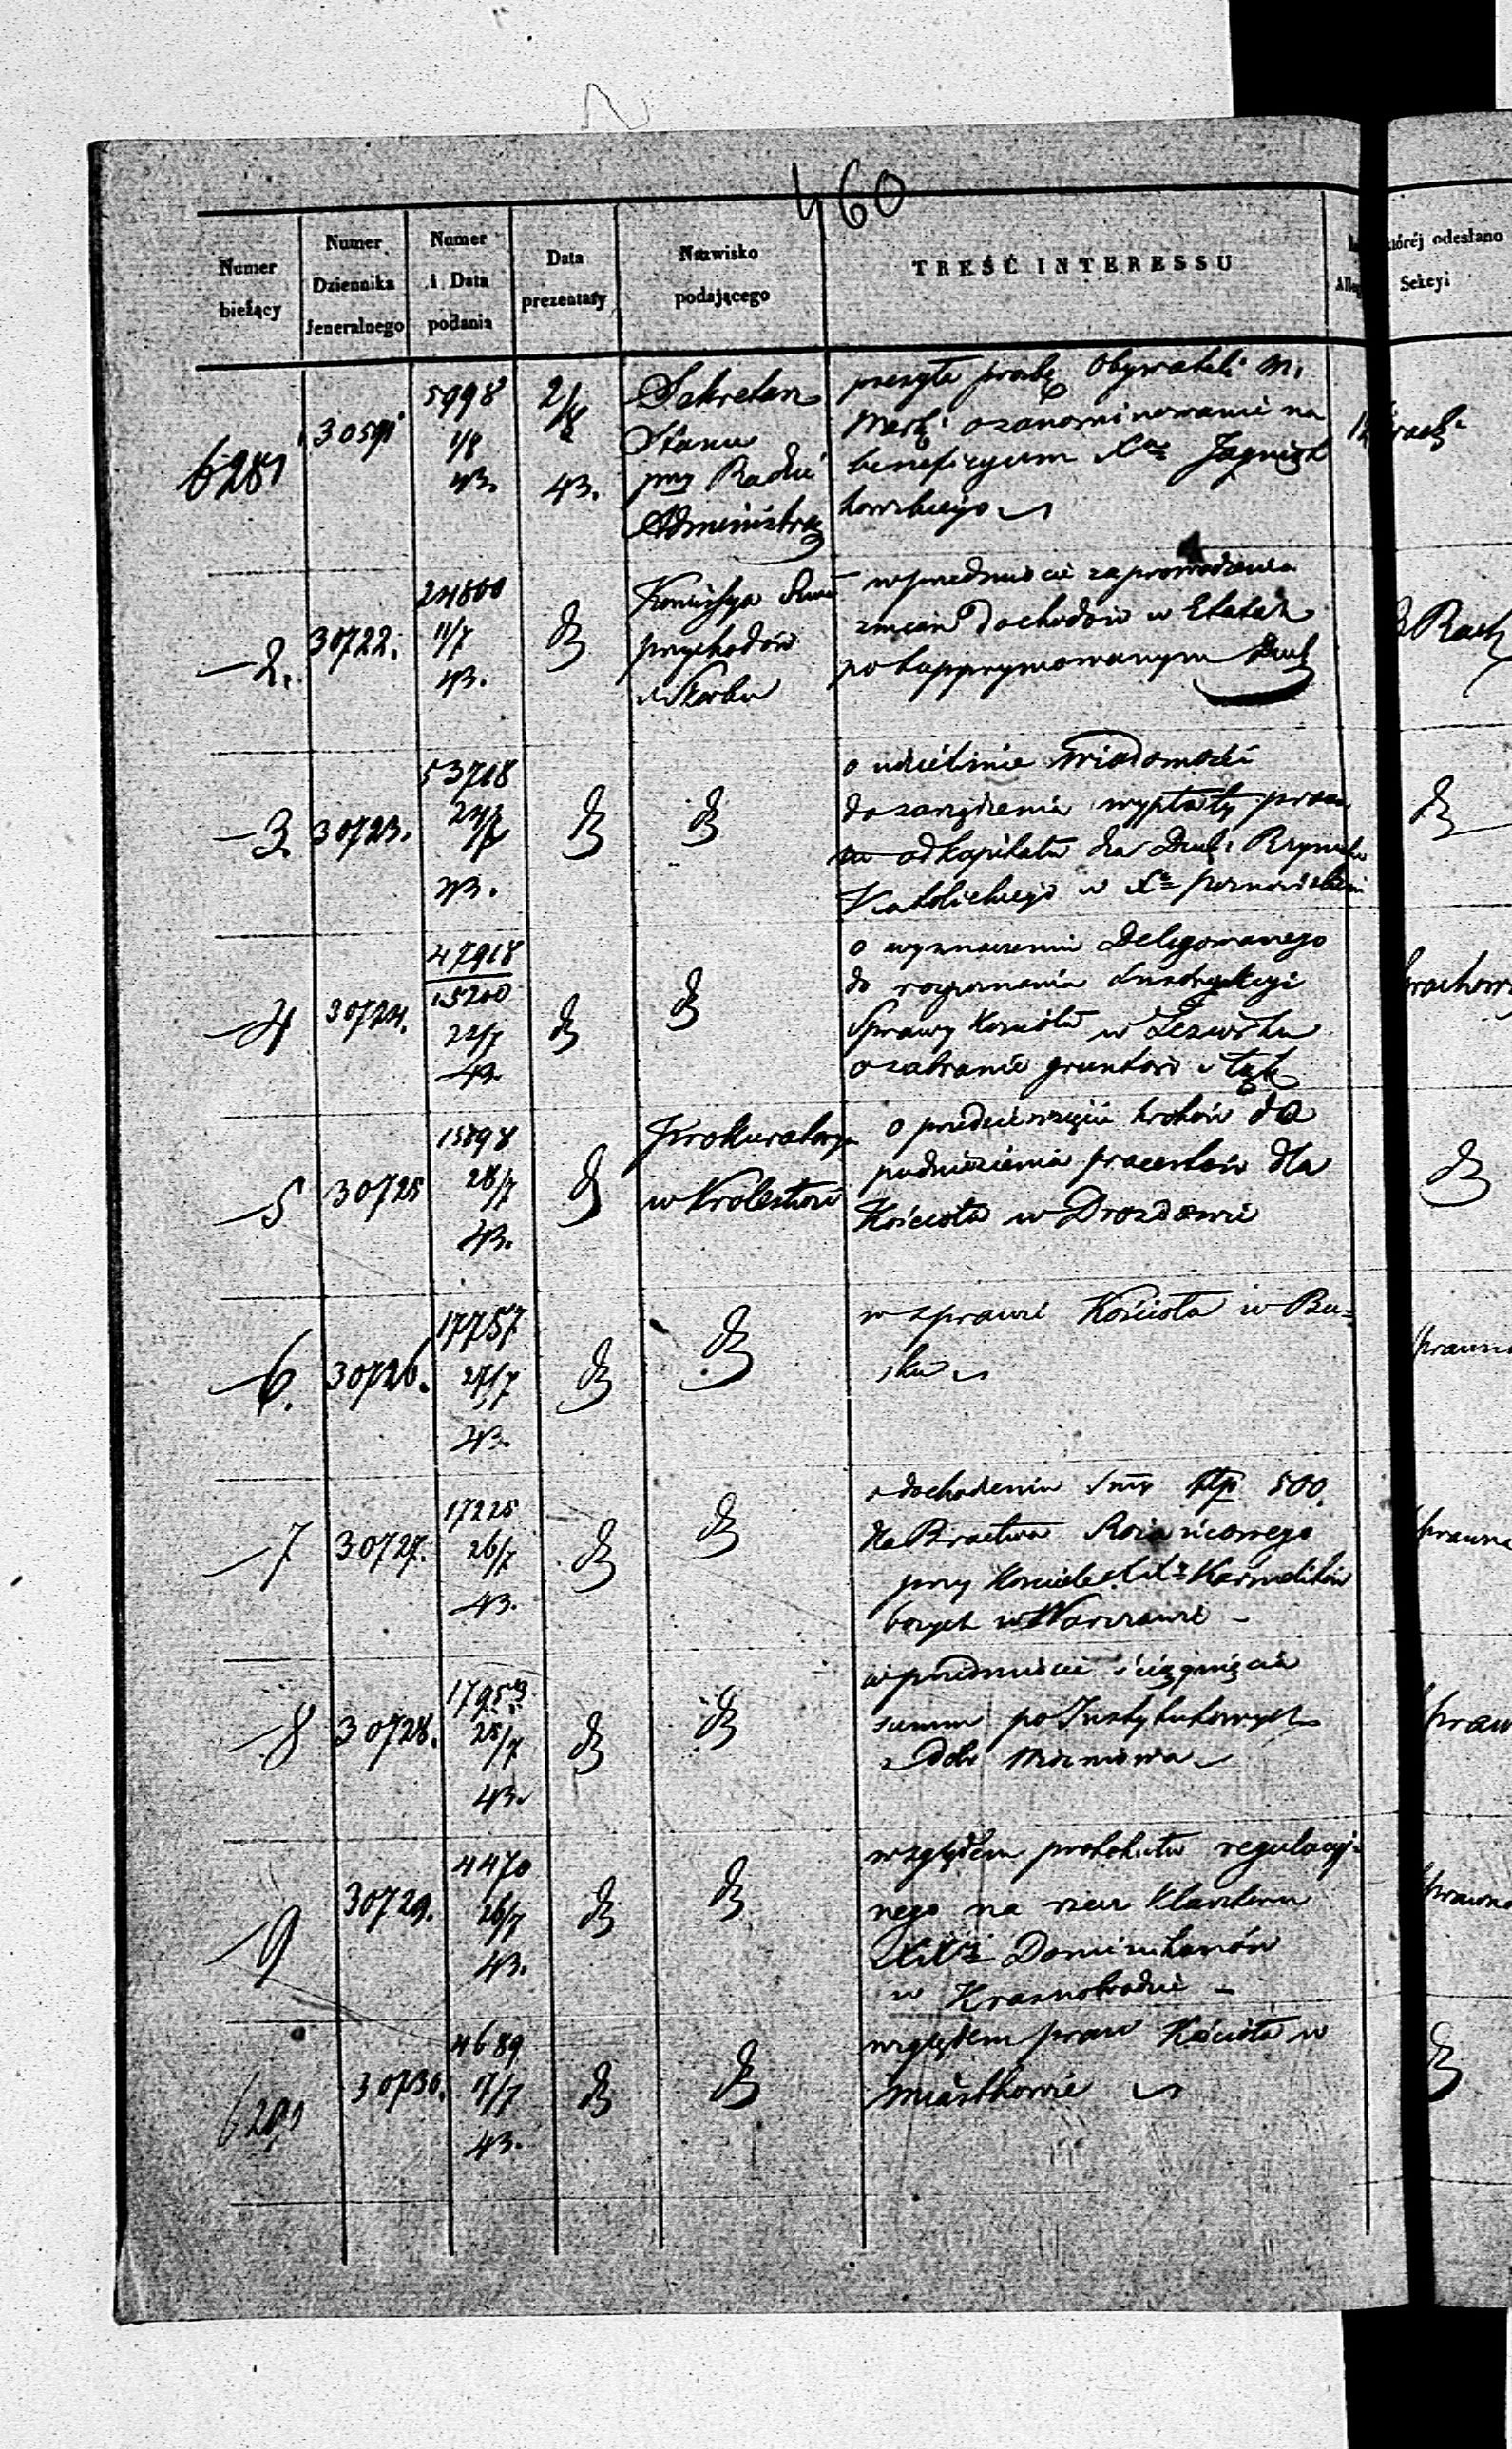 460
Numer bieżący
Numer Dziennika Jeneralnego
Numer i Data podania
Data prezentaty
Nazwisko podającego
TREŚĆ INTERESSU
której odesłano
Sekcyi
6281
30591
5998
1/8
43.
2/8
43.
Sekretarz
Stanu
przy Radzie
Administra
przesyła prośbę Obywateli M.
o zanominowanie na
beneficyum Xa
kowskiego
2.
30722.
24800
11/7
43.
d
Komissya
przychodów
i Skarbu
w przedmiocie zaprowadzenia
zmian dochodów w Etatach
po supprymowanym Duch
Rach
3.
30723.
53718
43.
d
d
o udzielenie wiadomości
do zarządzenia wypłaty procen
tu od kapitału dla Duch. Rzymsko
Katolickiego w Xie Poznańskiem
d
4
30724.
47918
15200
22/7
43.
d
d
o wyznaczenie Delegowanego
do rozpoznania
Sprawy Kościoła w
o zabranie gruntów i łąk
5
30725
15898
28/7
43.
d
Prokuratorya
w Królestwie
o przedsięwzięcie kroków do
podniesienia procentów dla
Kościoła w Drozdowie
d
6.
30726.
17757
27/7
43.
d
d
w sprawie Kościoła w Bu=
sku
prawna
7
30727.
17225
26/7
43.
d
d
o dochodzeniu Smy złp 500.
dla Bractwa Rożańcowego
przy Kościele XX Karmelitów
bosych w Warszawie –
prawna
8
30728.
17953
25/7
43.
d
d
w przedmiocie ściągnięcia
summ po Instytutowych
z Dóbr
praw
9
30729.
4470
26/7
43.
d
d
względem protokułu regulacyj=
nego na rzecz Klasztoru
XX Dominikanów
w Krasnobrodzie –
prawna
6290
30730.
4689
17/7
43.
d
d
względem praw Kościoła w
Miastkowie
d